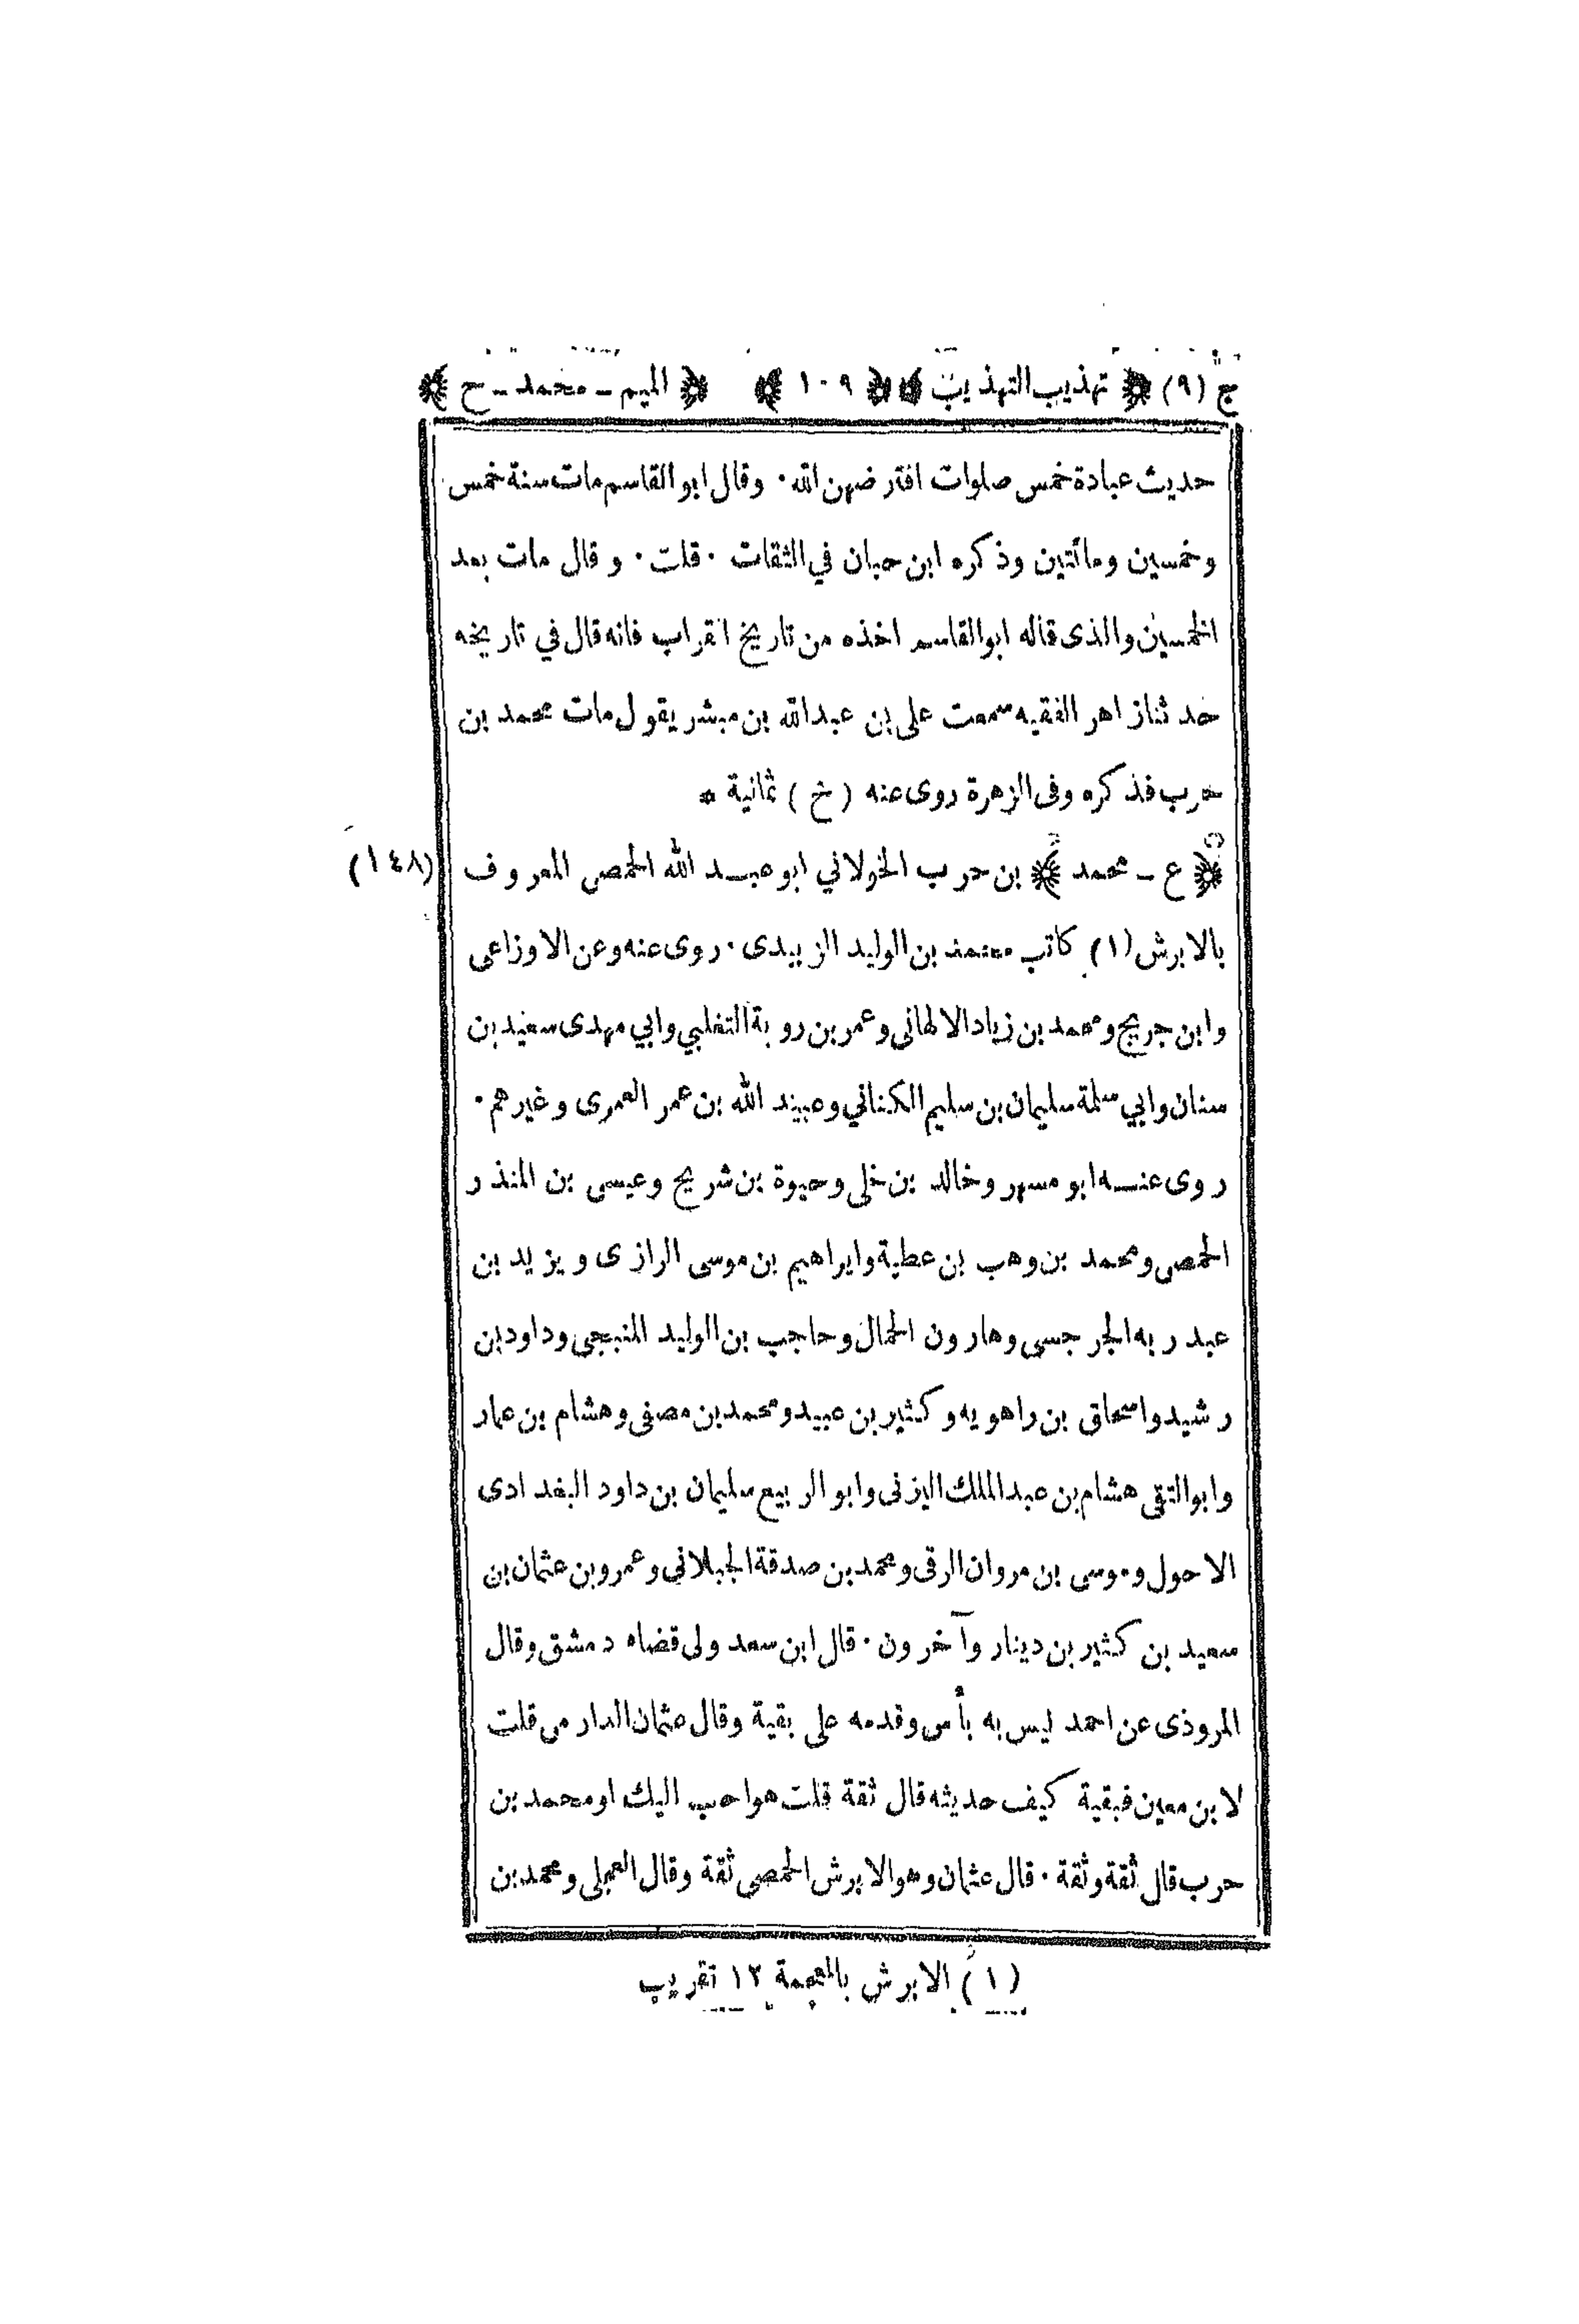 ج (٩) ﴿ تهذيب التهذيب ﴾ ﴿ ١٠٩ ﴾ ﴿ الميم - محمد - ح ﴾
حديث عبادة خمس صلوات افترضهن الله ٠ وقال ابو القاسم مات سنة خمس
وخمسين ومائتين وذكره ابن حبان في الثقات ٠ قلت ٠ وقال مات بعد
الخمسين والذى قاله ابوالقاسم اخذه من تاريخ القراب فانه قال في تاريخه
حدثنا زاهر الفقيه سمعت على بن عبدالله بن مبشر يقول مات محمد بن
حرب فذكره وفى الزهرة روى عنه ( خ ) ثمانية *
﴿ ع - محمد ﴾ بن حرب الخولاني ابو عبد الله الحمصى المعروف (١٤٨)
بالابرش (١) كاتب محمد بن الوليد الزبيدى ٠ روى عنه وعن الاوزاعى
وابن جريج ومحمد بن زياد الالهانى وعمر بن روبة التغلبي وابي مهدى سعيد بن
سنان وابي سلمة سليمان بن سليم الكناني وعبيد الله بن عمر العمرى وغيرهم ٠
روى عنه ابو مسهر وخالد بن خلى وحيوة بن شريح وعيسى بن المنذر
الحمصى ومحمد بن وهب بن عطية وابراهيم بن موسى الرازى ويزيد بن
عبد ربه الجرجسى وهارون الحمال وحاجب بن الوليد المنبجى وداود بن
رشيد واسحاق بن راهويه وكثير بن عبيد ومحمد بن مصفى وهشام بن عمار
وابو التقى هشام بن عبد الملك اليزنى وابو الربيع سليمان بن داود البغدادى
الاحول وموسى بن مروان الرقى ومحمد بن صدقة الجبلاني وعمرو بن عثمان بن
سعيد بن كثير بن دينار وآخرون ٠ قال ابن سعد ولى قضاه دمشق وقال
المروذى عن احمد ليس به بأس وقدمه على بقية وقال عثمان الدارمى قلت
لا بن معين فبقية كيف حديثه قال ثقة قلت هو احب اليك او محمد بن
حرب قال ثقة وثقة ٠ قال عثمان وهو الابرش الحمصى ثقة وقال العجلى ومحمد بن
(١) الابرش بالمعجمة ١٢ تقريب